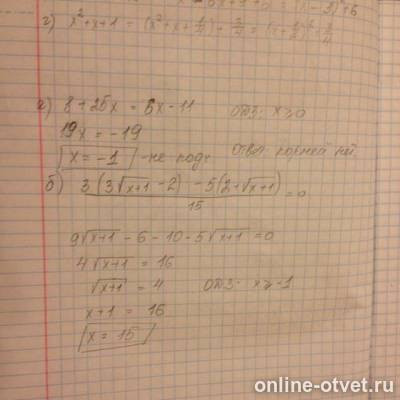 г) x² + x + 1 = (x² + x + 1/4) + 3/4 = (x + 1/2)² + 3/4
а) 8 + 25x = 6x - 11 ОДЗ: x ≥ 0
19x = -19
x = -1 - не подх Ответ корней нет
б) 3(3√x+1 - 2) - 5(2+√x+1) / 15 = 0
9√x+1 - 6 - 10 - 5√x+1 = 0
4√x+1 = 16
√x+1 = 4 ОДЗ: x ≥ -1
x + 1 = 16
x = 15
online-otvet.ru